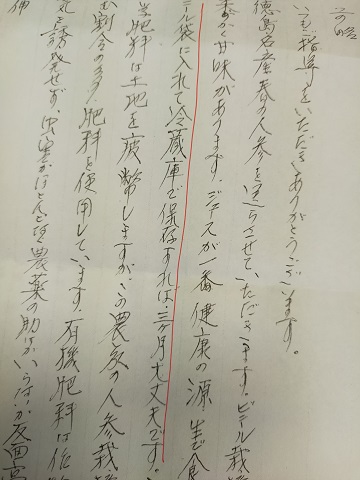 前略
いつもご指導をいただきありがとうございます。
徳島名産春の人参を送らさせていただきます。ビニール栽
香がく甘味があります。ジュースが一番健康の源 生で食
ニール袋に入れて冷蔵庫で保存すれば、三ヶ月大丈夫です。
学肥料は土地を疲弊しますが、この農家の人参栽
む割合のます。肥料を使用しています。有機肥料は作物
気を誘発せず、虫害がほとんどなく農薬の助けがいらない反面高